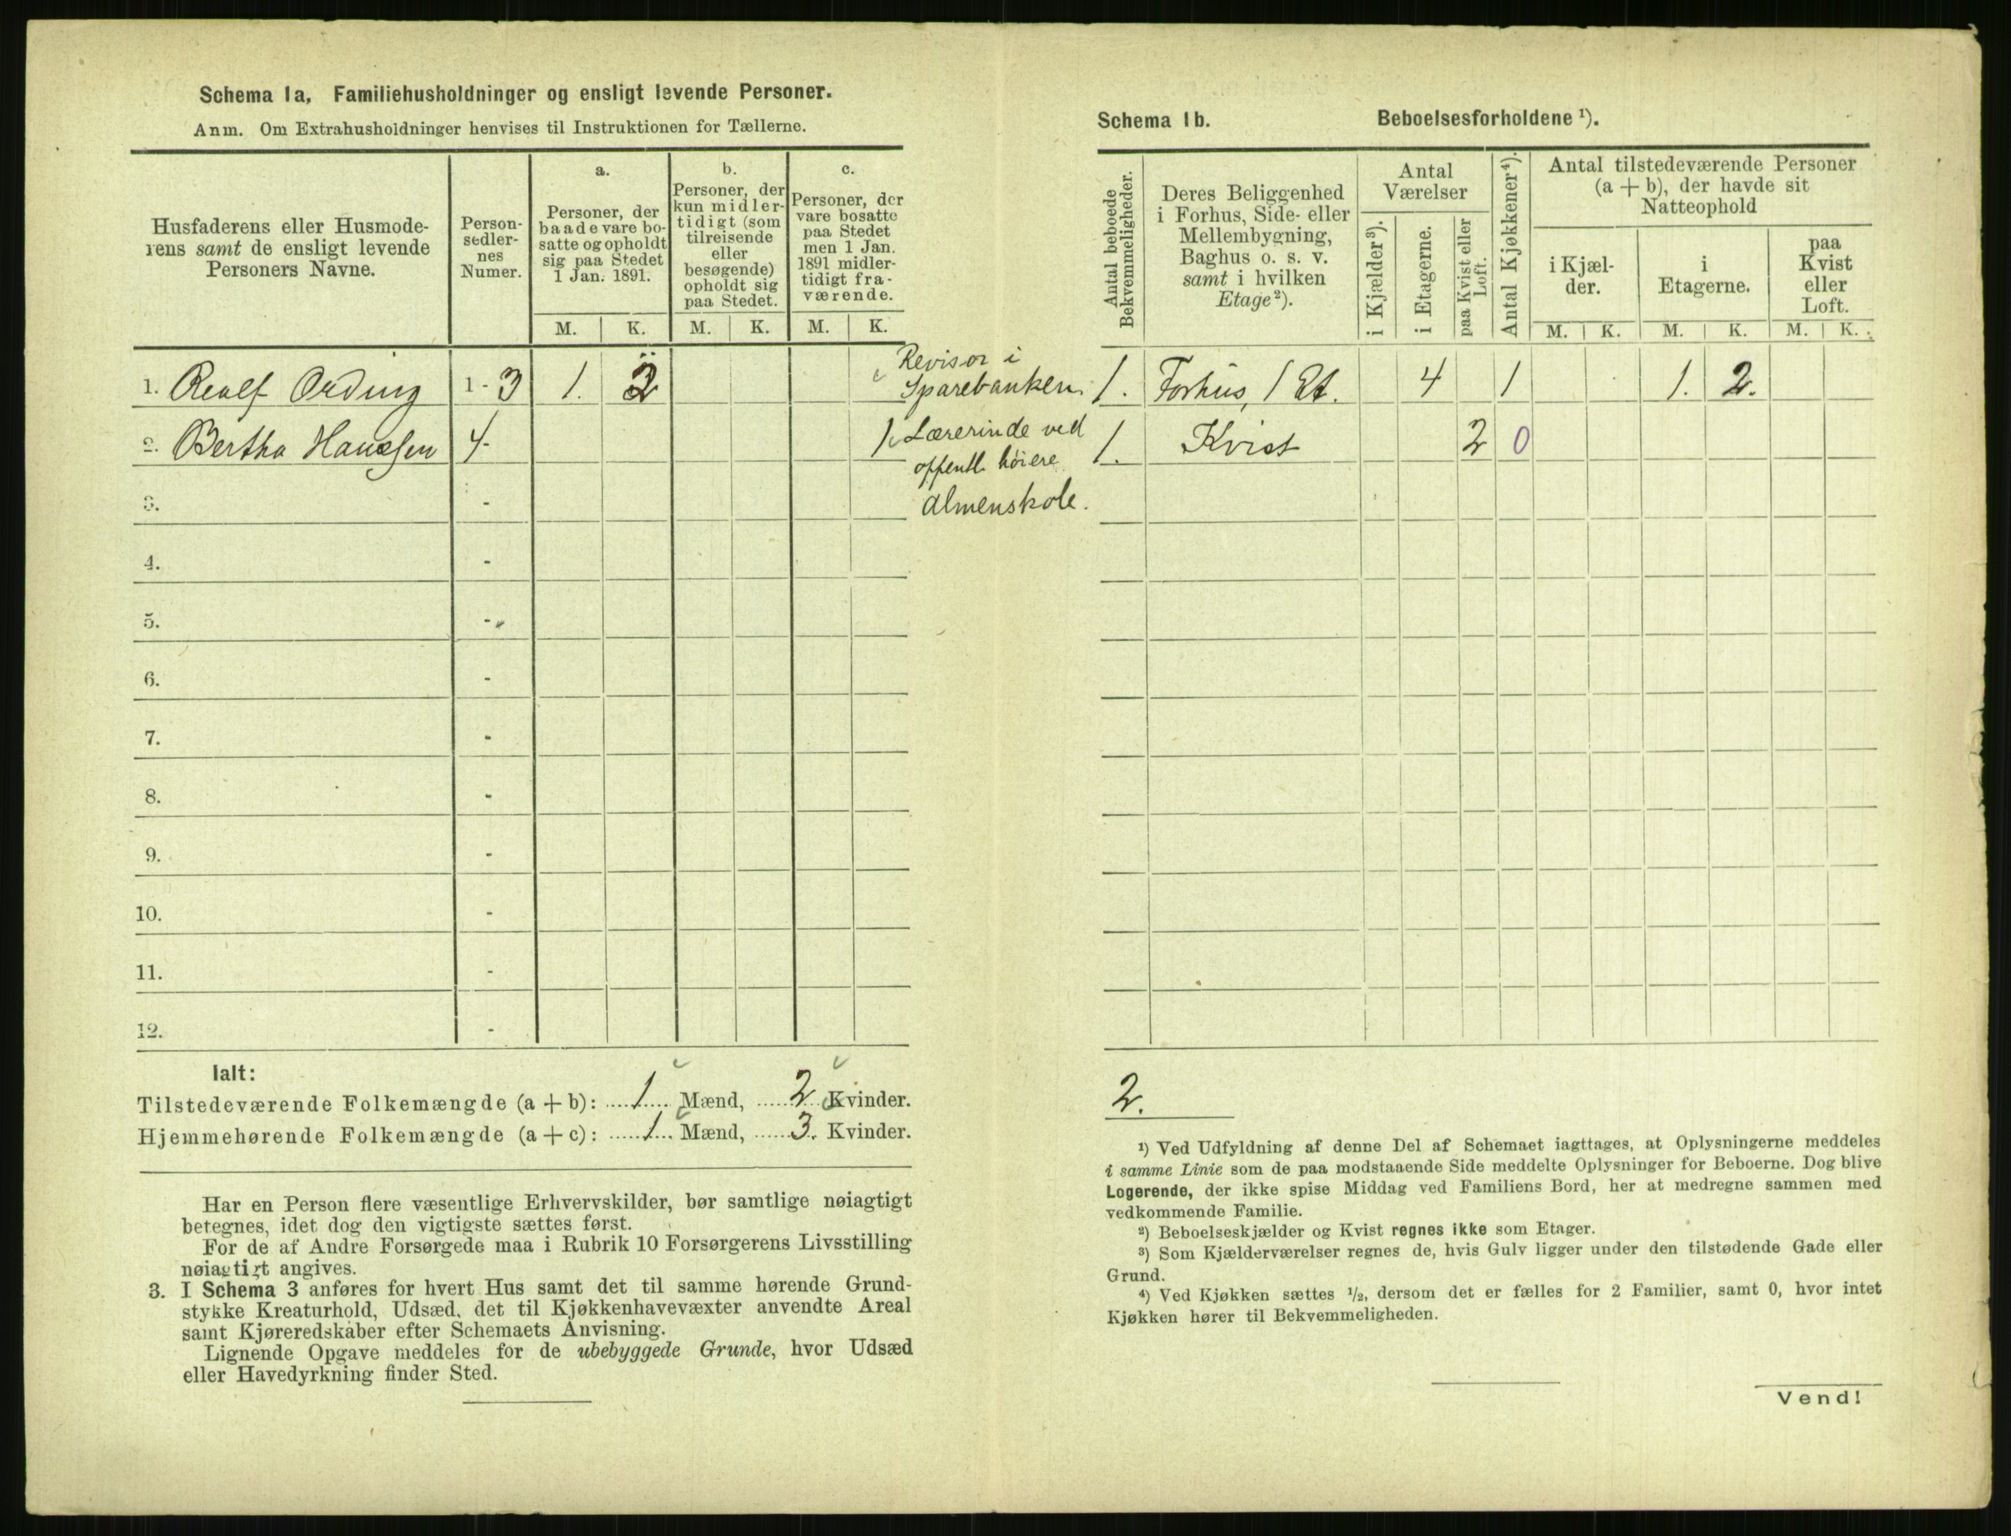 Schema 1a, Familiehusholdninger og ensligt levende Personer.
Anm. Om Extrahusholdninger henvises til Instruktionen for Tællerne.
Husfaderens eller Husmode-
rens samt de ensligt levende
Personers Navne.
Person-
sedler-
nes
Numer.
a.
Personer, der
baade vare bo-
satte og opholdt
sig paa Stedet
1 Jan. 1891.
b.
Personer, der
kun midler-
tidigt (som
tilreisende
eller
besøgende)
opholdt sig
paa Stedet.
c.
Personer, der
vare bosatte
paa Stedet
men 1 Jan.
1891 midler-
tidigt fra-
værende.
M. K. M. K. M. K.
1. Rolf Ording 1 - 3 1. 2 Revisor i
Sparebanken.
2. Bertha Hanssen 4 - 1 Lærerinde ved
offentl. høiere
Almenskole.
3. -
4. -
5. -
6. -
7. -
8. -
9. -
10. -
11. -
12. -
Ialt:
Tilstedeværende Folkemængde (a + b): 1 Mænd, 2 Kvinder.
Hjemmehørende Folkemængde (a + c): 1. Mænd, 3. Kvinder.
Har en Person flere væsentlige Erhvervskilder, bør samtlige nøiagtigt
betegnes, idet dog den vigtigste sættes først.
For de af Andre Forsørgede maa i Rubrik 10 Forsørgerens Livsstilling
nøiagtigt angives.
3. I Schema 3 anføres for hvert Hus samt det til samme hørende Grund-
stykke Kreaturhold, Udsæd, det til Kjøkkenhavevæxter anvendte Areal
samt Kjøreredskaber efter Schemaets Anvisning.
Lignende Opgave meddeles for de ubebyggede Grunde, hvor Udsæd
eller Havedyrkning finder Sted.
Schema 1b. Beboelsesforholdene ¹).
Antal beboede
Bekvemmeligheder.
Deres Beliggenhed
i Forhus, Side- eller
Mellembygning,
Baghus o. s. v.
samt i hvilken
Etage²).
Antal
Værelser
i Kjælder³).
i Etagerne.
paa Kvist eller
Loft.
Antal Kjøkkener⁴).
Antal tilstedeværende Personer
(a + b), der havde sit
Natteophold
i Kjæl-
der.
i
Etagerne.
paa
Kvist
eller
Loft.
M. K. M. K. M. K.
1. Forhus, 1 Et. 4 1 1. 2.
1. Kvist 2 0
2.
¹) Ved Udfyldning af denne Del af Schemaet iagttages, at Oplysningerne meddeles
i samme Linie som de paa modstaaende Side meddelte Oplysninger for Beboerne. Dog blive
Logerende, der ikke spise Middag ved Familiens Bord, her at medregne sammen med
vedkommende Familie.
²) Beboelseskjælder og Kvist regnes ikke som Etager.
³) Som Kjælderværelser regnes de, hvis Gulv ligger under den tilstødende Gade eller
Grund.
⁴) Ved Kjøkken sættes ½, dersom det er fælles for 2 Familier, samt 0, hvor intet
Kjøkken hører til Bekvemmeligheden.
Vend!